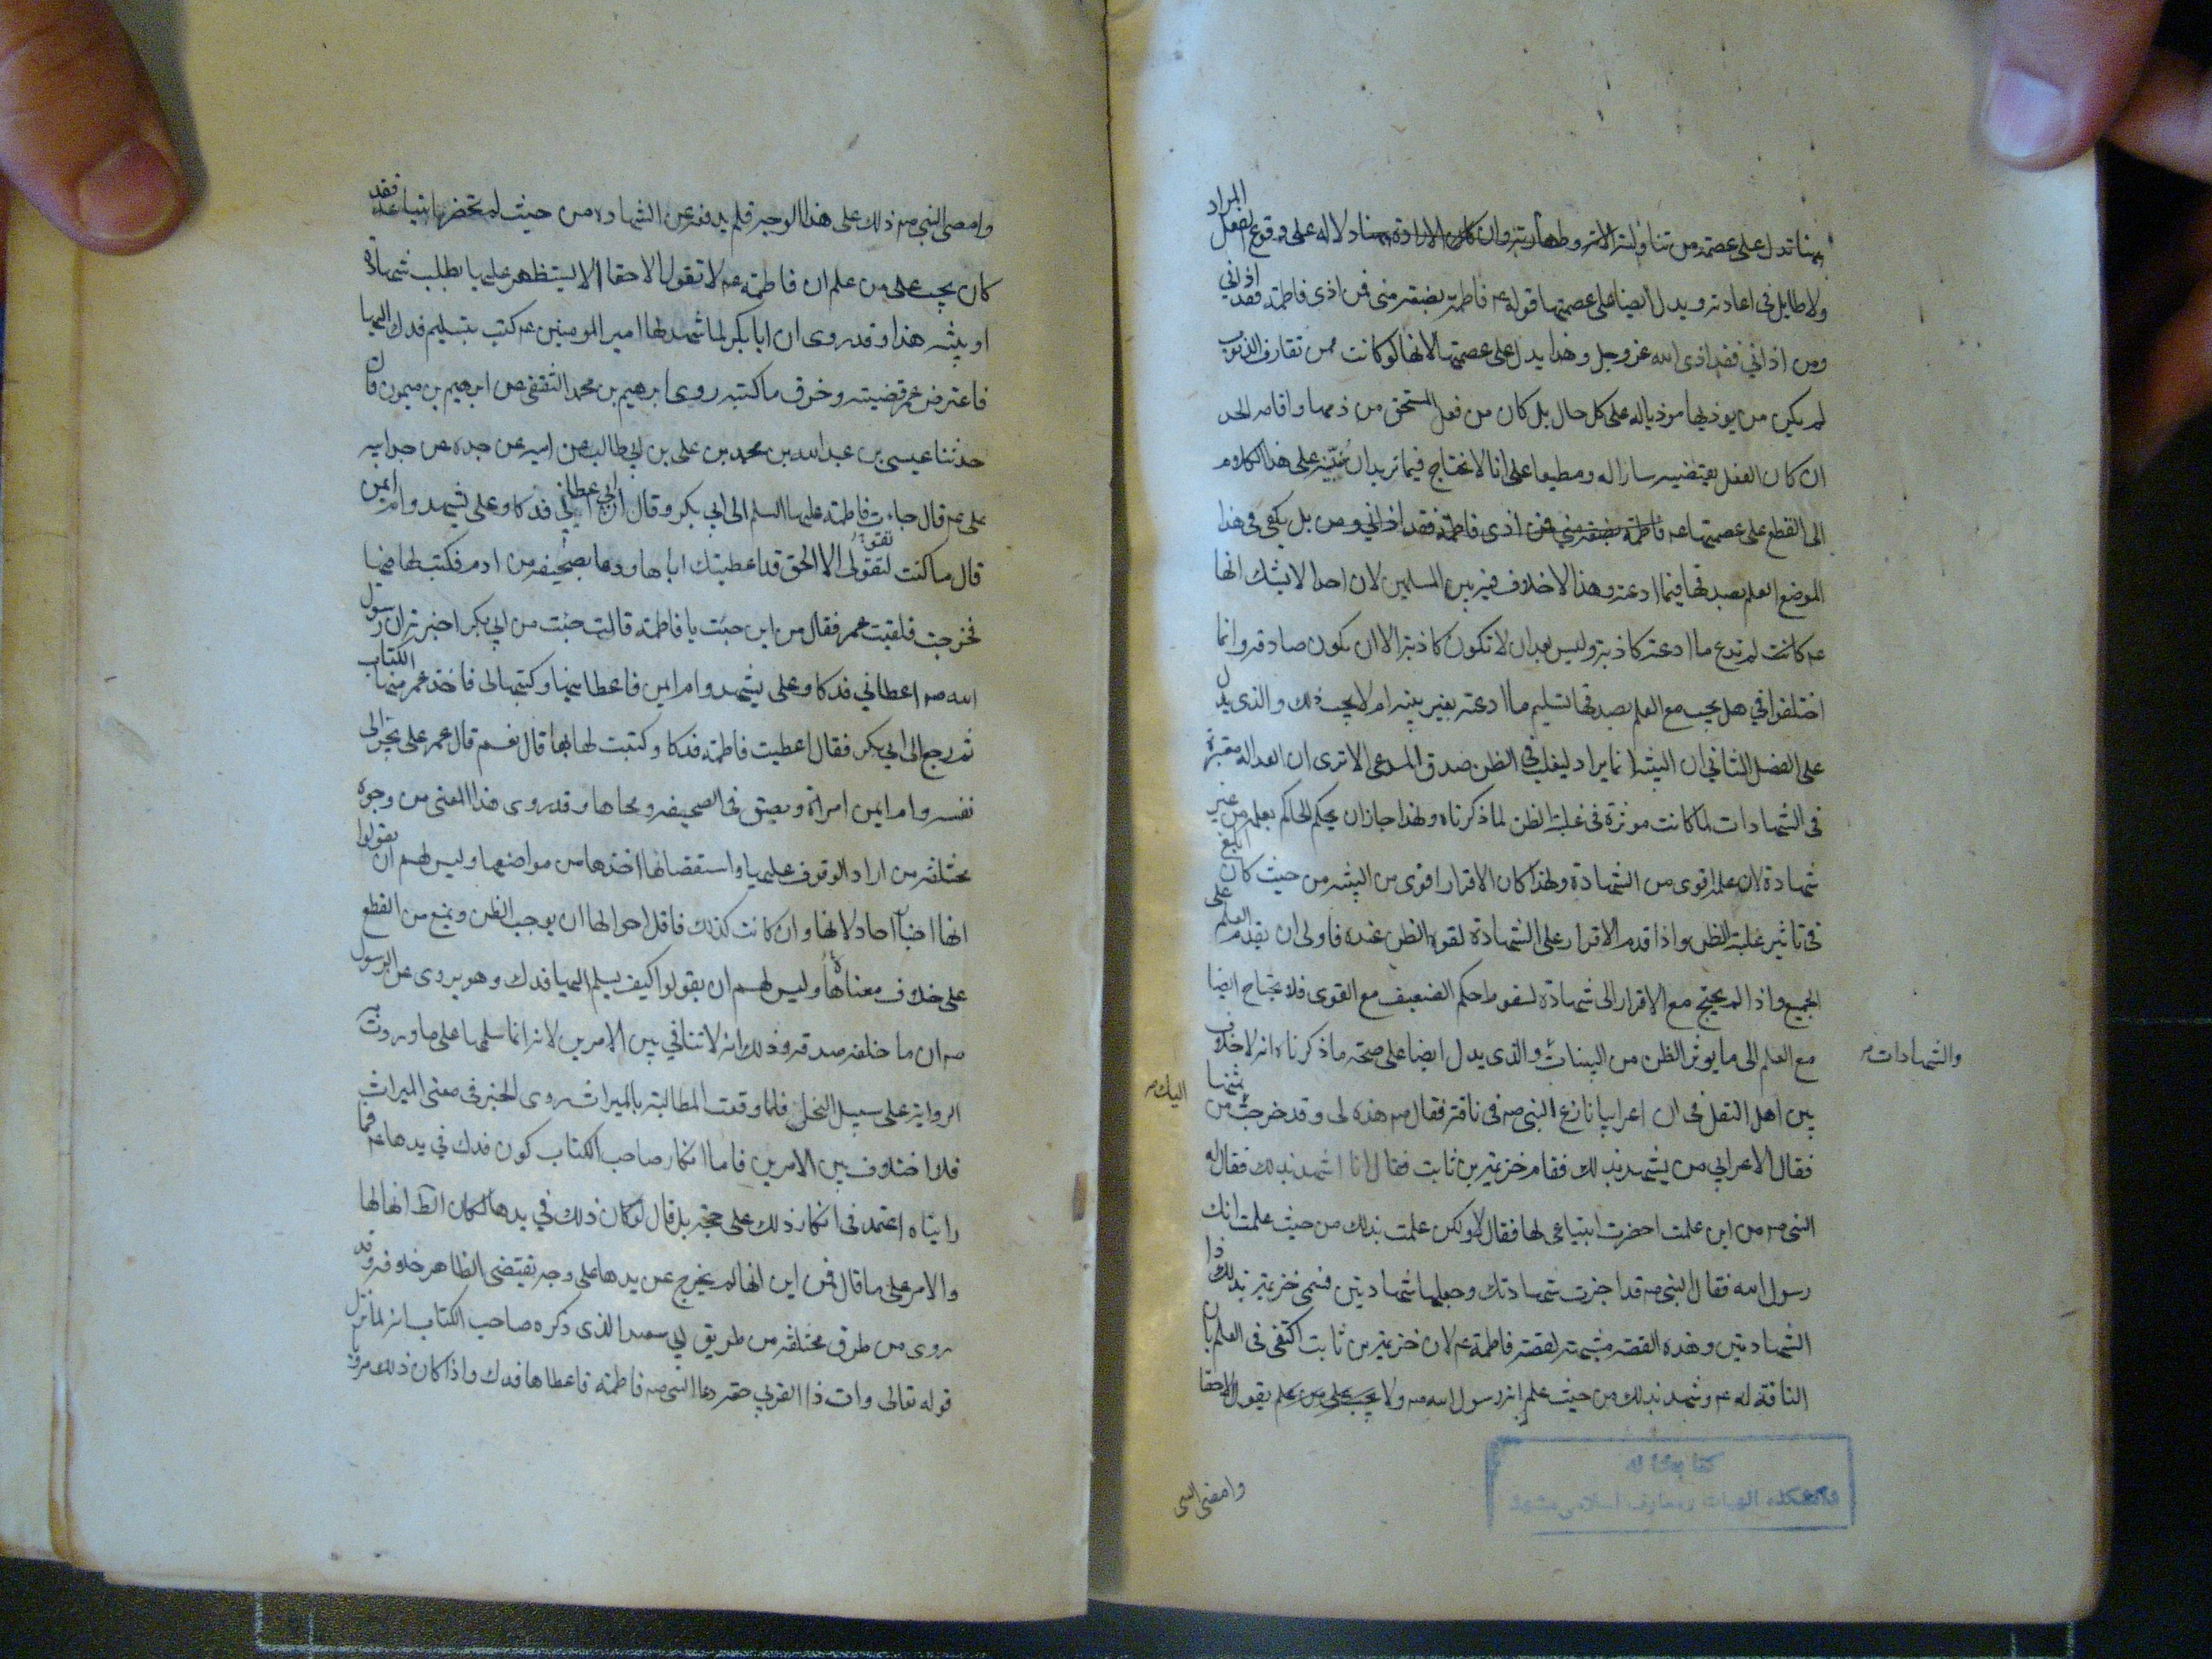 بهنا تدل على عصمته من تناولته الاية وطهارته وان كان الارادة هنا دلالة على وقوع الفعل المراد
ولا طايل في اعادته ويدل ايضا على عصمتها قوله عه فاطمة بضعة مني فمن اذى فاطمة فقد اذاني
ومن اذاني فقد اذى الله عز وجل وهذا يدل على عصمتها لانها لو كانت ممن تقارف الذنوب
لم يكن من يوذيها موذيا له على كل حال بل كان من فعل المستحق من ذمها واقامة الحد
ان كان الفعل يقتضيه سارا له ومطيعا على انا لا نحتاج فيما نريد ان نبينه على هذا الكلام
الى القطع على عصمتها عه فاطمة بضعة مني فمن اذى فاطمة فقد اذاني ومن بل يكفي في هذا
الموضع العلم بصدقها فيما ادعته وهذا لا خلاف فيه بين المسلمين لان احدا لا يشك انها
عه كانت لم تدع ما ادعته كاذبة وليس بعد ان لا تكون كاذبة الا ان يكون صادقة وانما
اختلفوا في هل يجب مع العلم بصدقها تسليم ما ادعته بغير بينه ام لا يجب ذلك والذي يدل
على الفصل الثاني ان البينه انما يراد ليغلب في الظن صدق المدعى الا ترى ان العداله معتبرة
في الشهادات لما كانت موثرة في غلبة الظن لما ذكرناه ولهذا جاز ان يحكم الحاكم بعلمه من غير
شهادة لان علمه اقوى من الشهادة ولهذا كان الاقرار اقوى من البينه من حيث كان ابلغ
في تاثير غلبة الظن واذا قدم الاقرار على الشهادة لقوة الظن عنده فاولى ان يقدم العلم على
الجميع واذا لم يحتج مع الاقرار الى شهادة لسقوط حكم الضعيف مع القوى فلا يحتاج ايضا
مع العلم الى ما يوثر الظن من البينات والذي يدل ايضا على صحة ما ذكرناه انه لا خلاف
والشهادات
بين اهل النقل في ان اعرابيا نازع النبي صه في ناقة فقال صه هذه لى وقد خرجت من ثمنها
اليك
فقال الاعرابي من يشهد بذلك فقام خزيمة بن ثابت فقال انا اشهد بذلك فقال له
النبي صه من اين علمت احضرت ابتياعى لها فقال لا ولكن علمت بذلك من حيث علمت انك
رسول الله فقال النبي صه قد اجزت شهادتك وجعلها شهادتين فسمى خزيمة بذلك ذا
الشهادتين وهذه القصة مشبهة لقصة فاطمة عه لان خزيمة بن ثابت اكتفى في العلم بان
الناقة له عه وشهد بذلك من حيث علم انه رسول الله صه ولا يجب على من علم يقول الا حقا
وامضى النبي
وامضى النبي صه ذلك على هذا الوجه فلم يدفعه عن الشهادة من حيث لم تحضر ابتياعه فقد
كان يجب على من علم ان فاطمة عه لا تقول الا حقا الا ليستظهر عليها بطلب شهادة
او بينه هذا وقد روى ان ابا بكر لما شهد لها امير المومنين عه كتب بتسليم فدك اليها
فاعترض عمر قضيته وخرق ما كتبه روى ابرهيم بن محمد الثقفي عن ابرهيم بن ميمون قال
حدثنا عيسى بن عبد الله بن محمد بن على بن ابي طالب عن ابيه عن جده عن جد ابيه
على عه قال جاءت فاطمة عليها السلم الى ابي بكر وقال ان ابي اعطاني فدكا وعلى يشهد وام ايمن
قال ما كنت لتقولى الا الحق قد اعطيتك اباها ودعا بصحيفة من ادم فكتب لها فيها
فخرجت فلقيت عمر فقال من اين جئت يا فاطمة قالت جئت من ابي بكر اخبرته ان رسول
الله صه اعطاني فدكا وعلى يشهد وام ايمن فاعطانيها وكتبها لى فاخذ عمر منها الكتاب
ثم رجع الى ابي بكر فقال اعطيت فاطمة فدكا وكتبت لها بها قال نعم قال عمر على يجر الى
نفسه وام ايمن امراة وبصق في الصحيفه ومحاها وقد روى هذا المعنى من وجوه
مختلفه من اراد الوقوف عليها واستقصائها اخذها من مواضعها وليس لهم ان يقولوا
انها اخبار احاد لانها وان كانت كذلك فاقل احوالها ان يوجب الظن ويمنع من القطع
على خلاف معناها وليس لهم ان يقولوا كيف يسلم اليها فدك وهو يروى عن الرسول
صه ان ما خلفه صدقه وذلك انه لا تنافي بين الامرين لانه انما سلمها على ما وردت به
الرواية على سبيل النحل فلما وقعت المطالبة بالميراث روى الخبر في معنى الميراث
فلا اختلاف بين الامرين فاما انكار صاحب الكتاب كون فدك في يدها عه فما
رايناه اعتمد في انكار ذلك على حجة بل قال لو كان ذلك في يدها لكان الظ انها لها
والامر على ما قال فمن اين انها لم يخرج عن يدها على وجه تقتضى الظاهر خلافه وقد
روى من طرق مختلفه من طريق ابي سعيد الذى ذكره صاحب الكتاب انه لما نزل
قوله تعالى وات ذا القربي حقه دعا النبي صه فاطمة فاعطاها فدك واذا كان ذلك مرويا